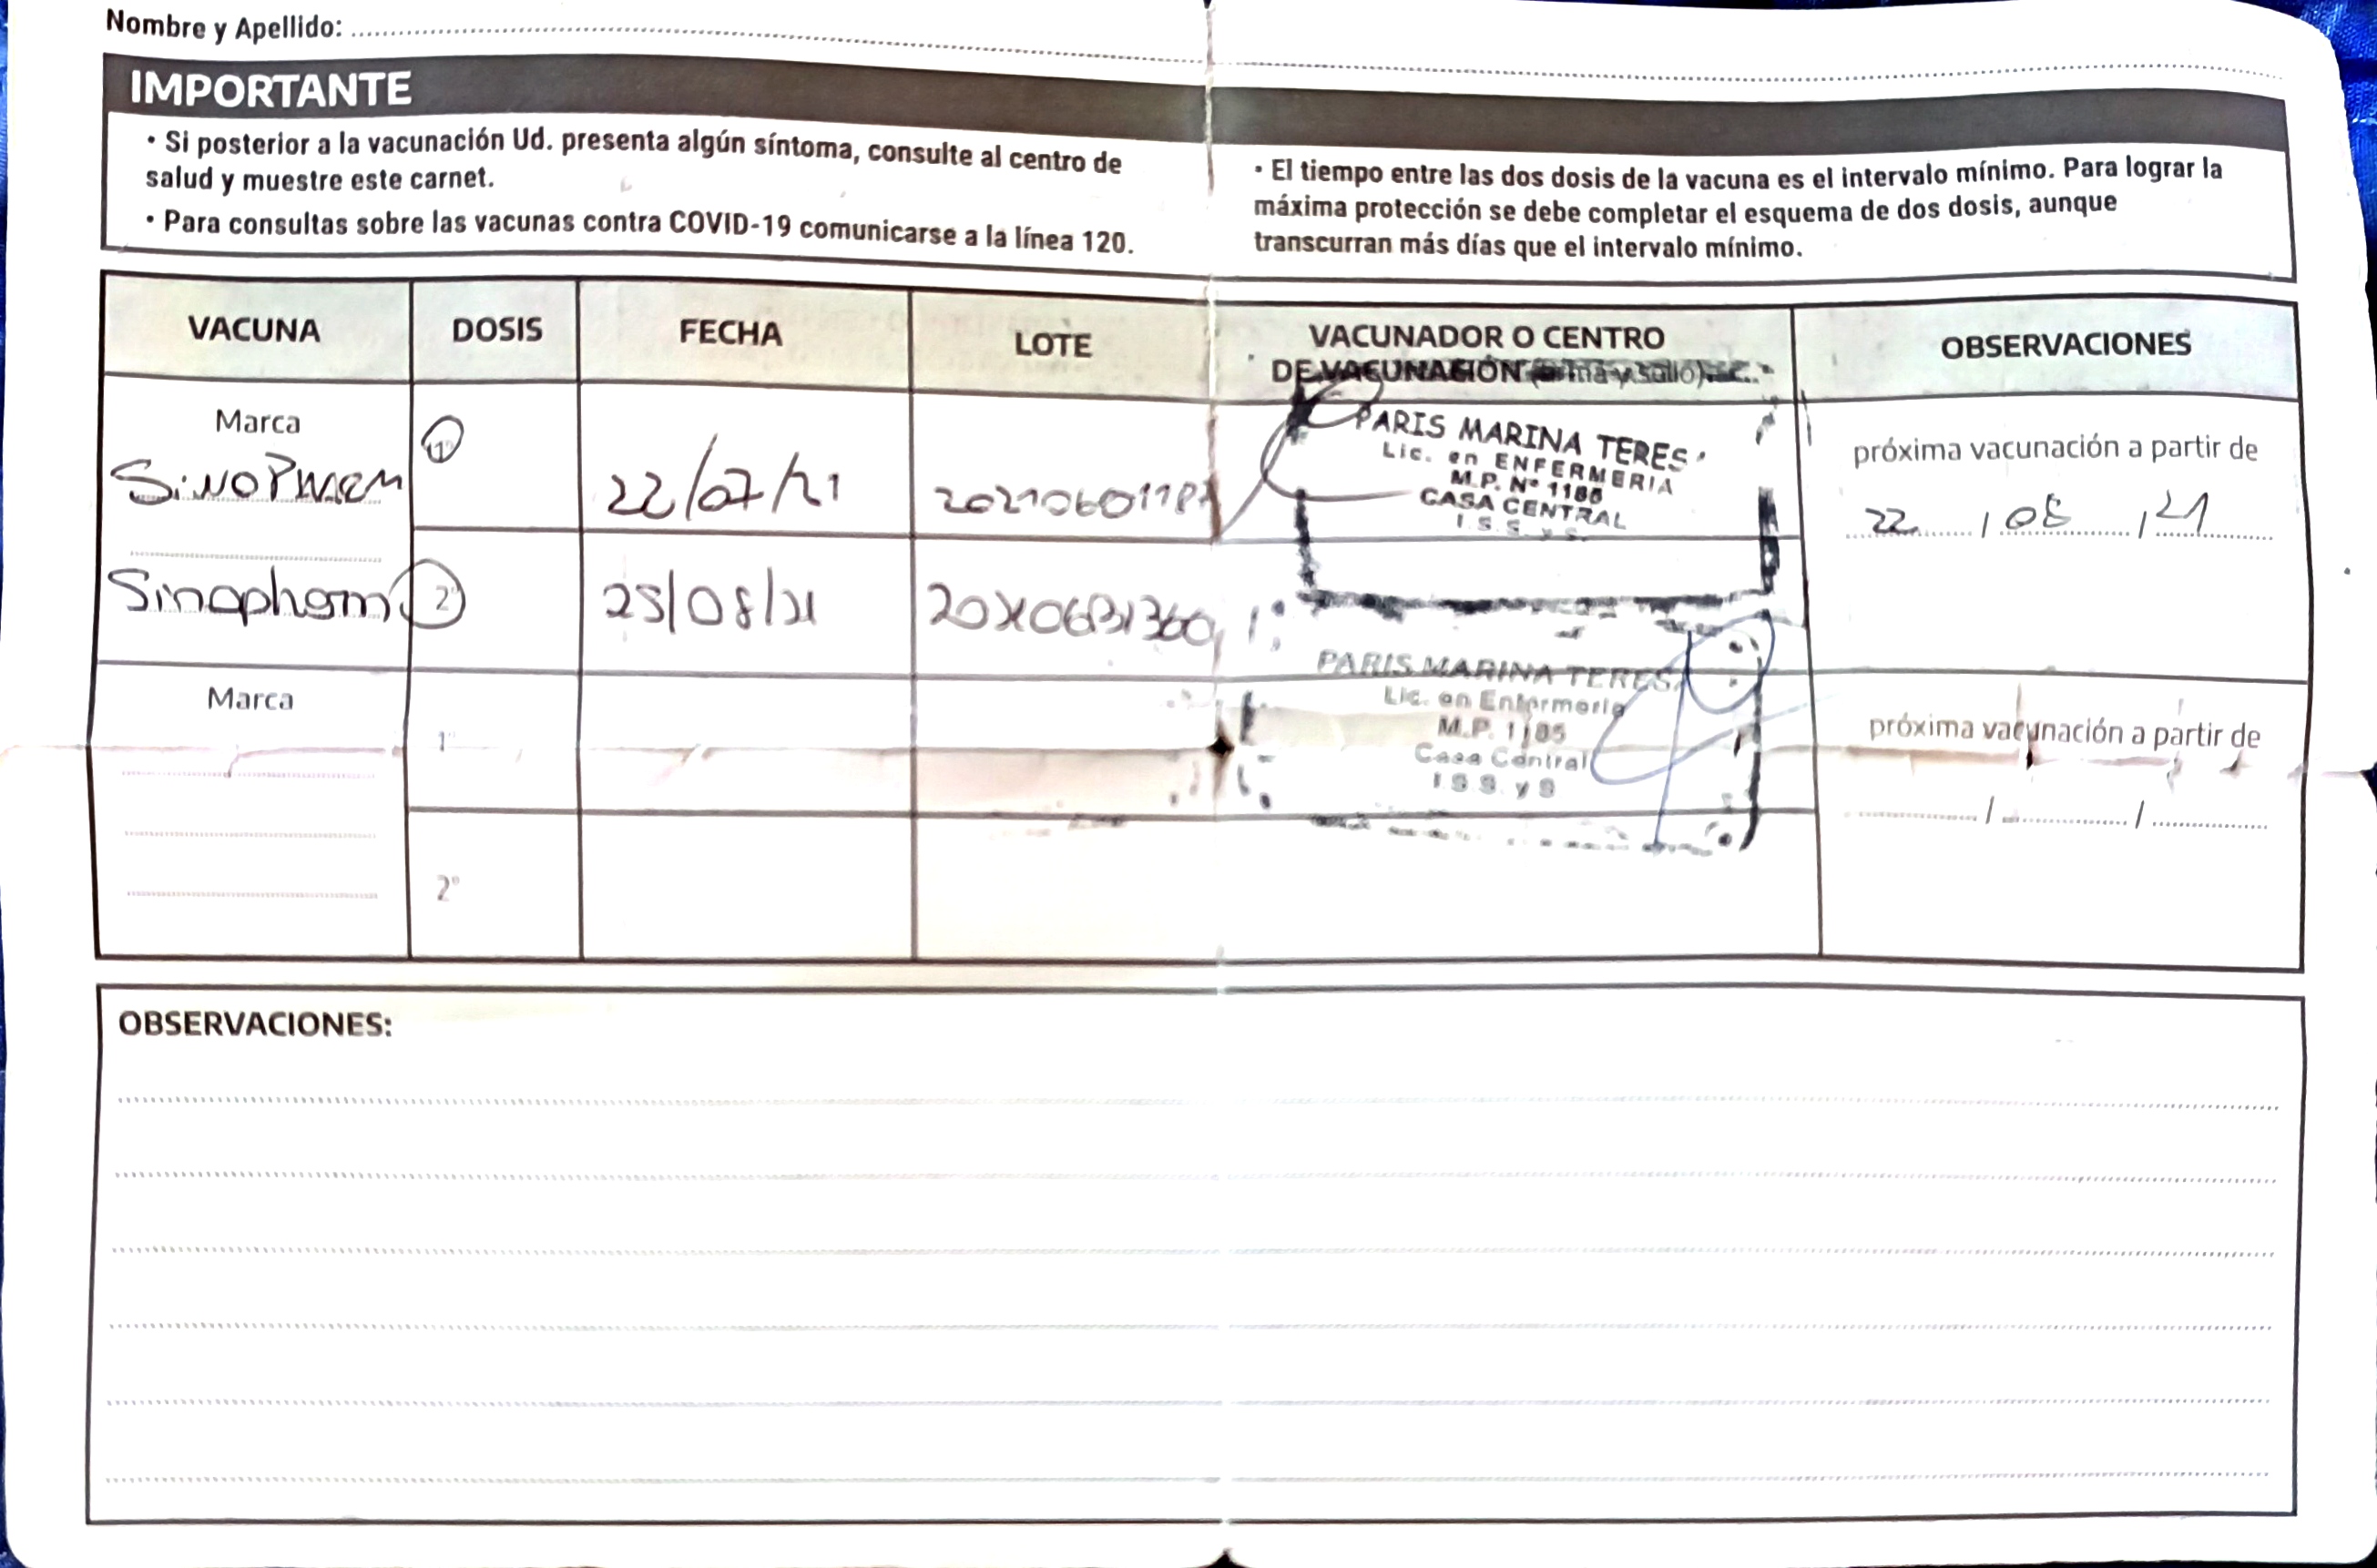 Nombre y Apellido:
IMPORTANTE
• Si posterior a la vacunación Ud. presenta algún síntoma, consulte al centro de
salud y muestre este carnet.
• Para consultas sobre las vacunas contra COVID-19 comunicarse a la línea 120.
• El tiempo entre las dos dosis de la vacuna es el intervalo mínimo. Para lograr la
máxima protección se debe completar el esquema de dos dosis, aunque
transcurran más días que el intervalo mínimo.
VACUNA DOSIS FECHA LOTE VACUNADOR O CENTRO
DE VACUNACIÓN (firma y sello) OBSERVACIONES
Marca
1°
22/07/21
PARIS MARINA TERES
Lic. en ENFERMERIA
M.P. Nº
CASA CENTRAL
I. S. S. y S.
próxima vacunación a partir de
22 / 08 / 21
Sinopharm 2°
/08/21
PARIS MARINA TERESA
Lic. en Enfermeria
M.P.
Casa Central
I S S y S
Marca
1°
próxima vacunación a partir de
/ /
2°
OBSERVACIONES: